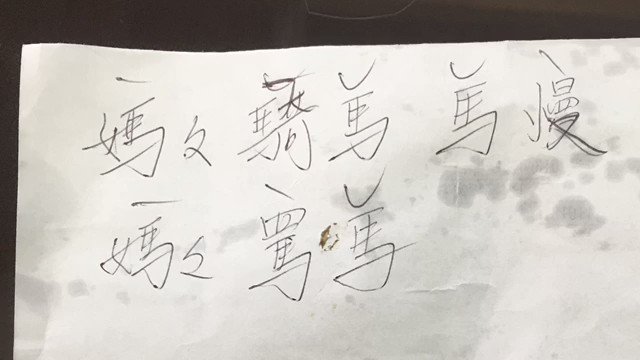 媽々 騎馬 馬慢
媽々 罵馬